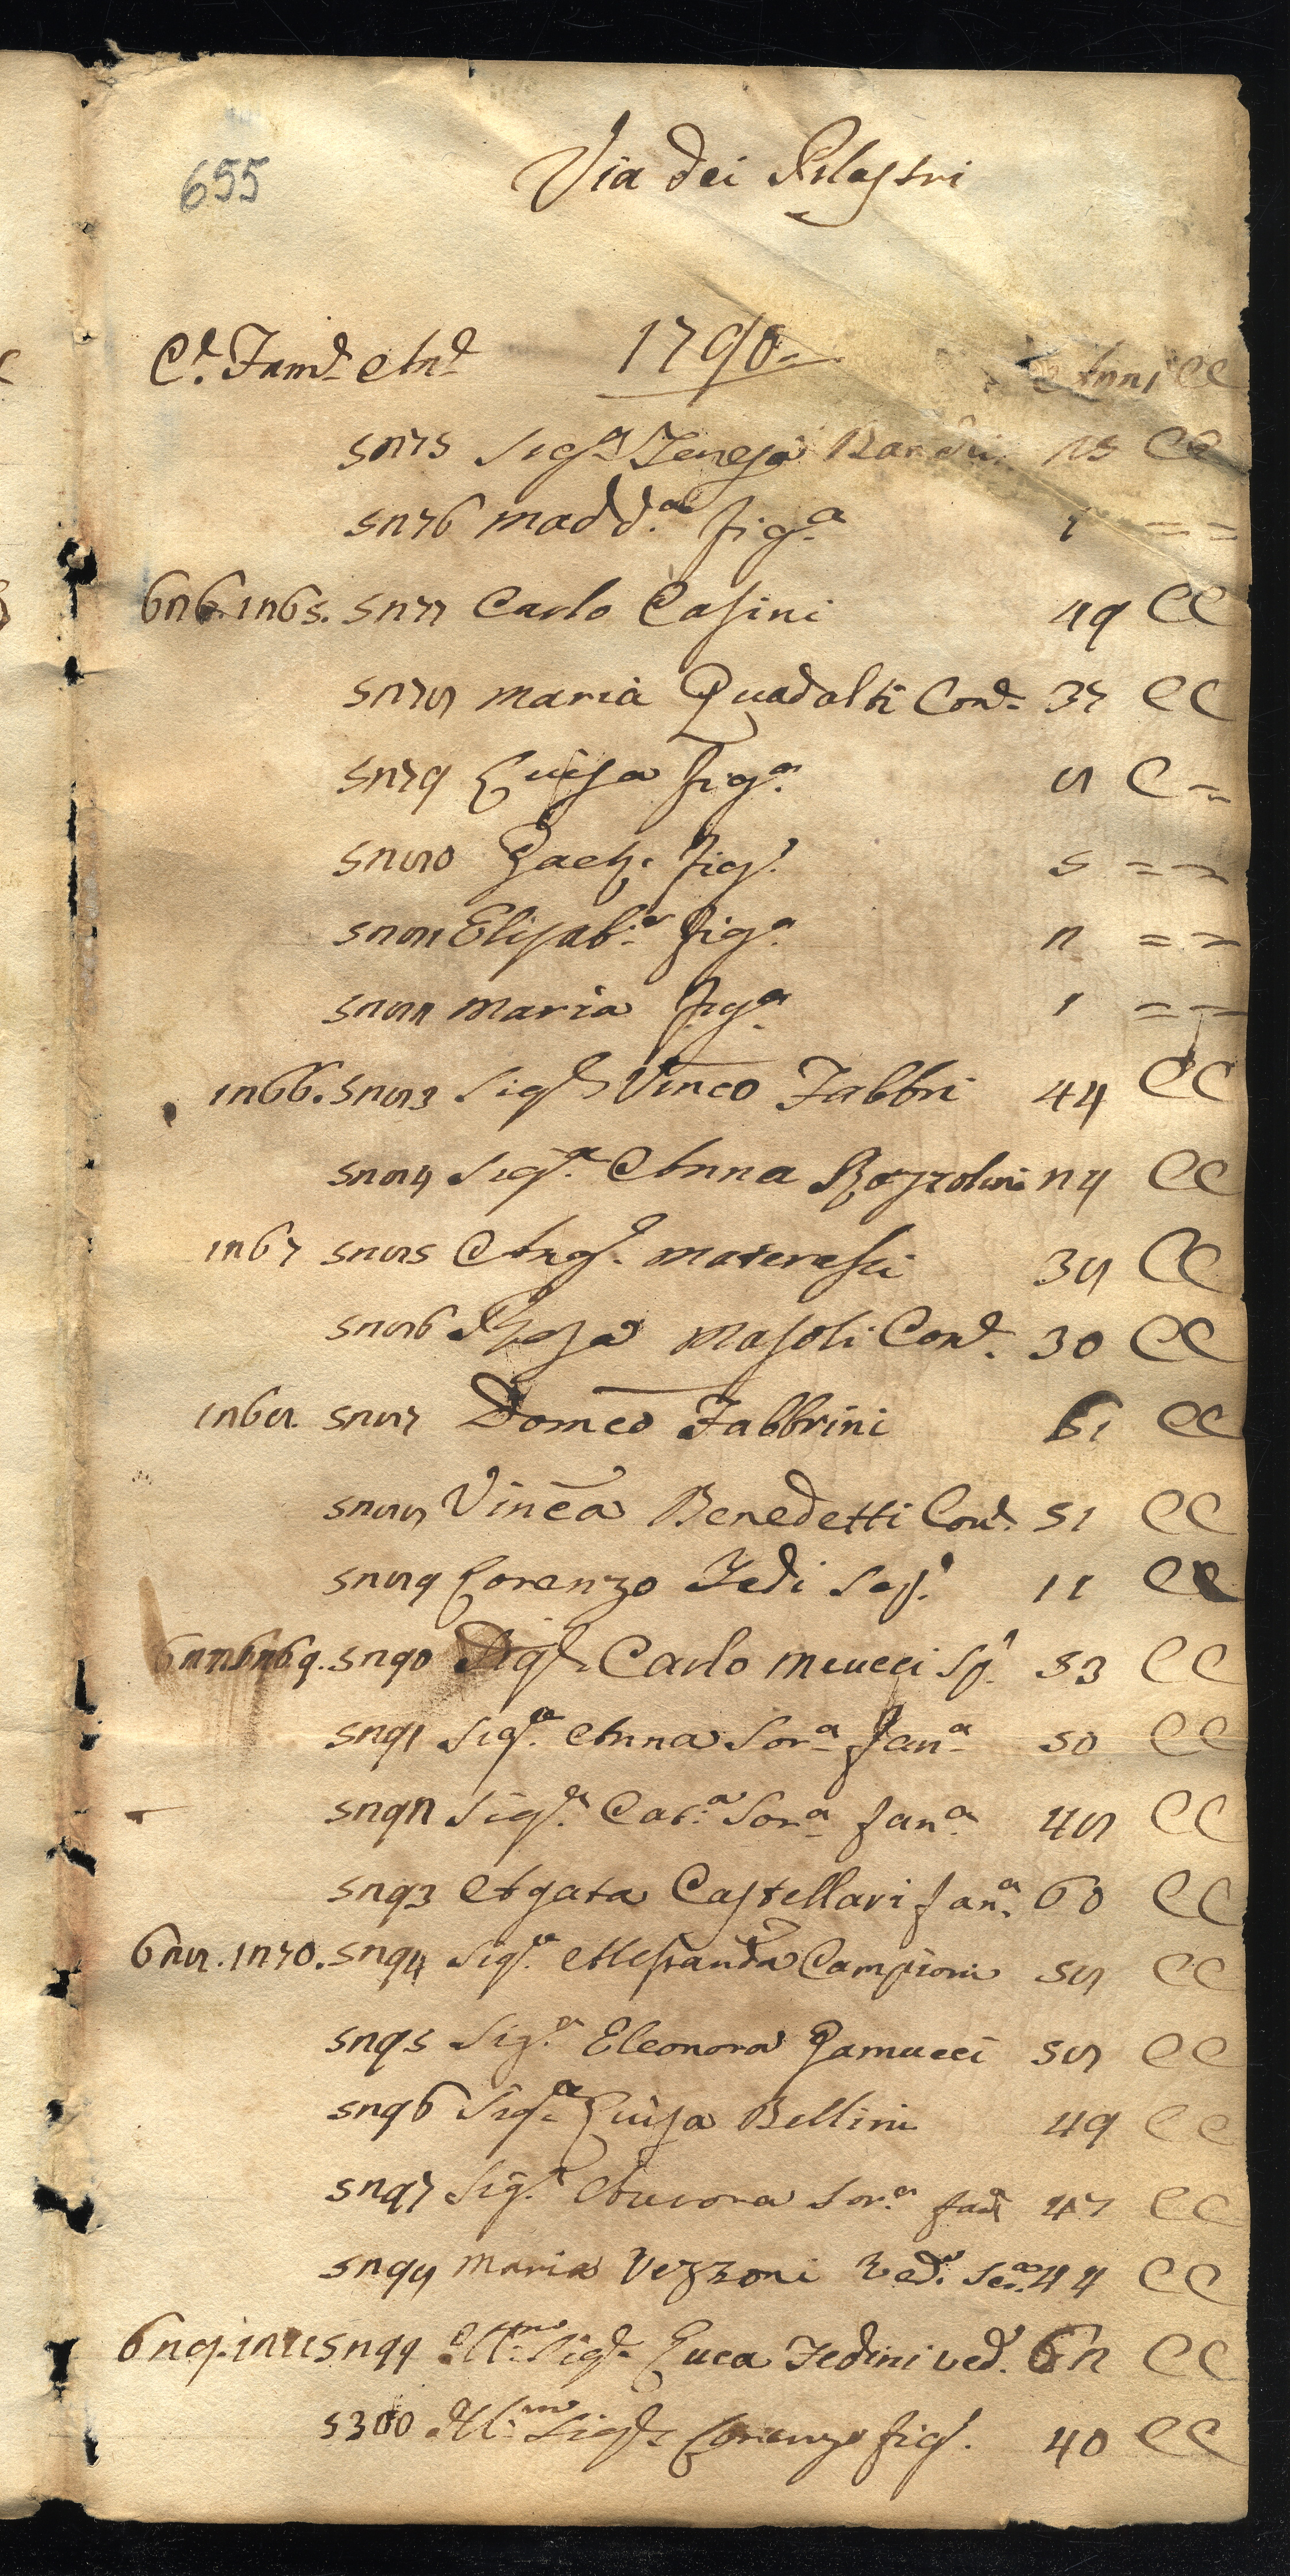 655
Via dei Pilastri
C.e Fam.e An.e 1790 Anni CC
5275 Sig.ra Teresa Bardi 25 CC
5276 Madd.a fig.a 1 = =
626. 1265. 5277 Carlo Casini 49 CC
5278 Maria Quadalti Con.e 37 CC
5279 Luisa fig.a 8 C =
5280 Gaet. fig.o 5 = =
5281 Elisab.a fig.a 2 = =
5282 Maria fig.a 1 = =
1266. 5283 Sig.r Vinco Fabbri 44 CC
5284 Sig.ra Anna 24 CC
1267 5285 Ang.o Materassi 38 CC
5286 Rosa Masoli Con.e 30 CC
1268 5287 Domco Fabbrini 61 CC
5288 Vinca Benedetti Con.e 51 CC
5289 Lorenzo Fedi 11 CC
627. 1269. 5290 Sig.r Carlo Meucci Sp.o 53 CC
5291 Sig.ra Anna Sor.a fan.a 50 CC
5292 Sig.ra Cat.a Sor.a fan.a 48 CC
5293 Agata Castellari fan.a 60 CC
628. 1270. 5294 Sig.ra Alessandra Campioni 58 CC
5295 Sig.ra Eleonora Gamucci 58 CC
5296 Sig.ra Luisa Bellini 49 CC
5297 Sig.ra Aurora Sor.a fan.a 47 CC
5298 Maria Vezzoni Ved.a Ser.a 44 CC
629. 1271 5299 Ill.mo Sig.r Luca Fedini ved.o 62 CC
5300 Ill.mo Sig.r Lorenzo fig.o 40 CC